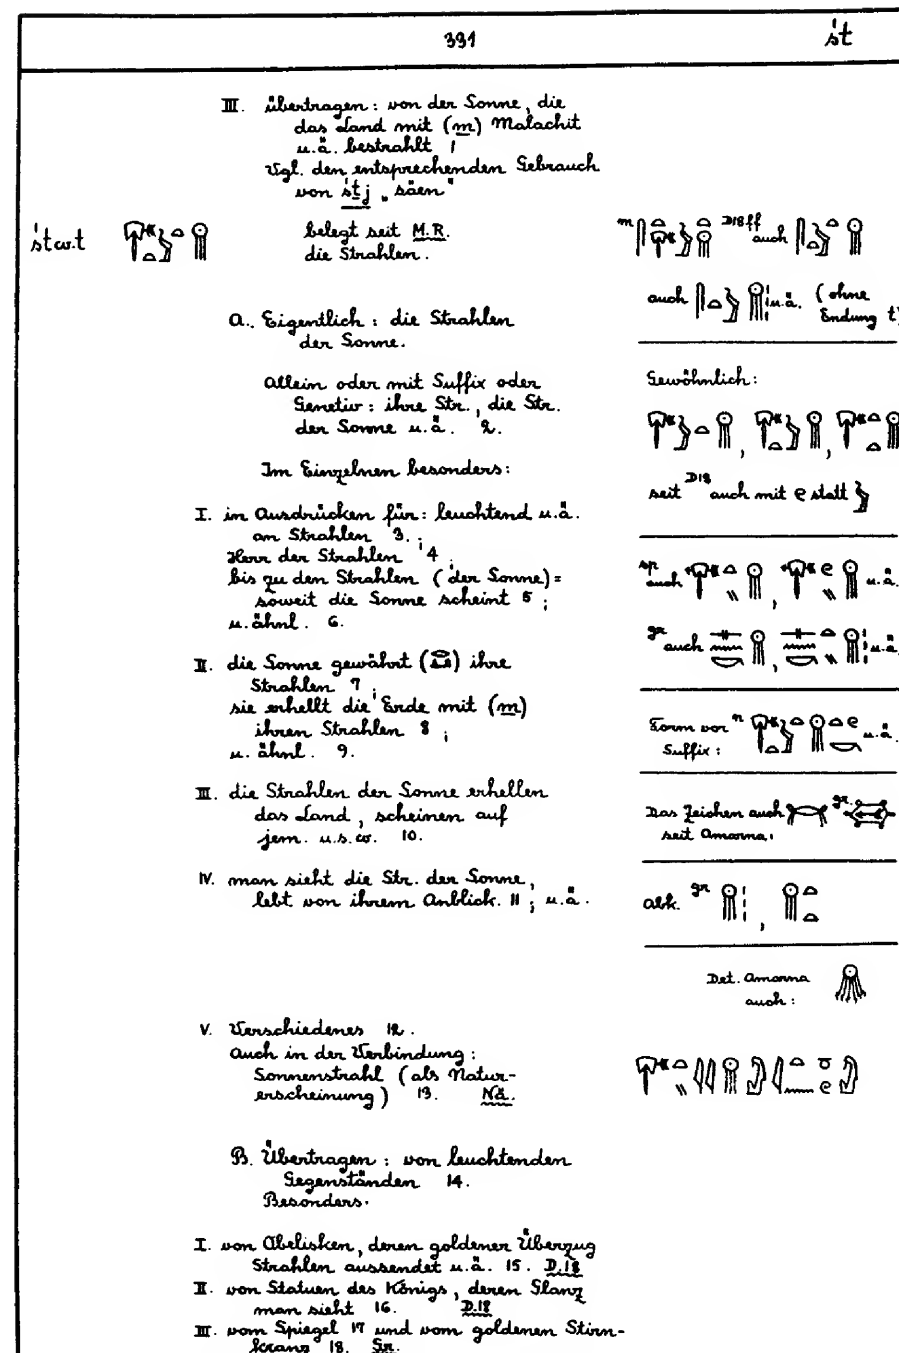 331 śt
III. übertragen: von der Sonne, die
das Land mit (m) Malachit
u.ä. bestrahlt 1
Vgl. den entsprechenden Gebrauch
von śṯj „säen"
śtw.t
belegt seit M.R.
die Strahlen.
A. Eigentlich: die Strahlen
der Sonne.
Allein oder mit Suffix oder
Genetiv: ihre Str., die Str.
der Sonne u.ä. 2.
Im Einzelnen besonders:
I. in Ausdrücken für: leuchtend u.ä.
an Strahlen 3.;
Herr der Strahlen 4;
bis zu den Strahlen (der Sonne) =
soweit die Sonne scheint 5;
u. ähnl. 6.
II. die Sonne gewährt ( ) ihre
Strahlen 7;
sie erhellt die Erde mit (m)
ihren Strahlen 8;
u. ähnl. 9.
III. die Strahlen der Sonne erhellen
das Land, scheinen auf
jem. u.s.w. 10.
IV. man sieht die Str. der Sonne,
lebt von ihrem Anblick. 11; u.ä.
V. Verschiedenes 12.
Auch in der Verbindung:
Sonnenstrahl (als Natur-
erscheinung) 13. Nä.
B. Übertragen: von leuchtenden
Gegenständen 14.
Besonders.
I. von Obelisken, deren goldener Überzug
Strahlen aussendet u.ä. 15. D.18
II. von Statuen des Königs, deren Glanz
man sieht 16. D.18
III. vom Spiegel 17 und vom goldenen Stirn-
kranz 18. Gr.
m D18ff auch
auch u.ä. (ohne
Endung t)
Gewöhnlich:
seit D18 auch mit statt
sp auch , u.ä.
gr auch , u.ä.
Form vor n
Suffix: u.ä.
Das Zeichen auch gr.
seit Amarna.
Abk. gr ,
Det. Amarna
auch: